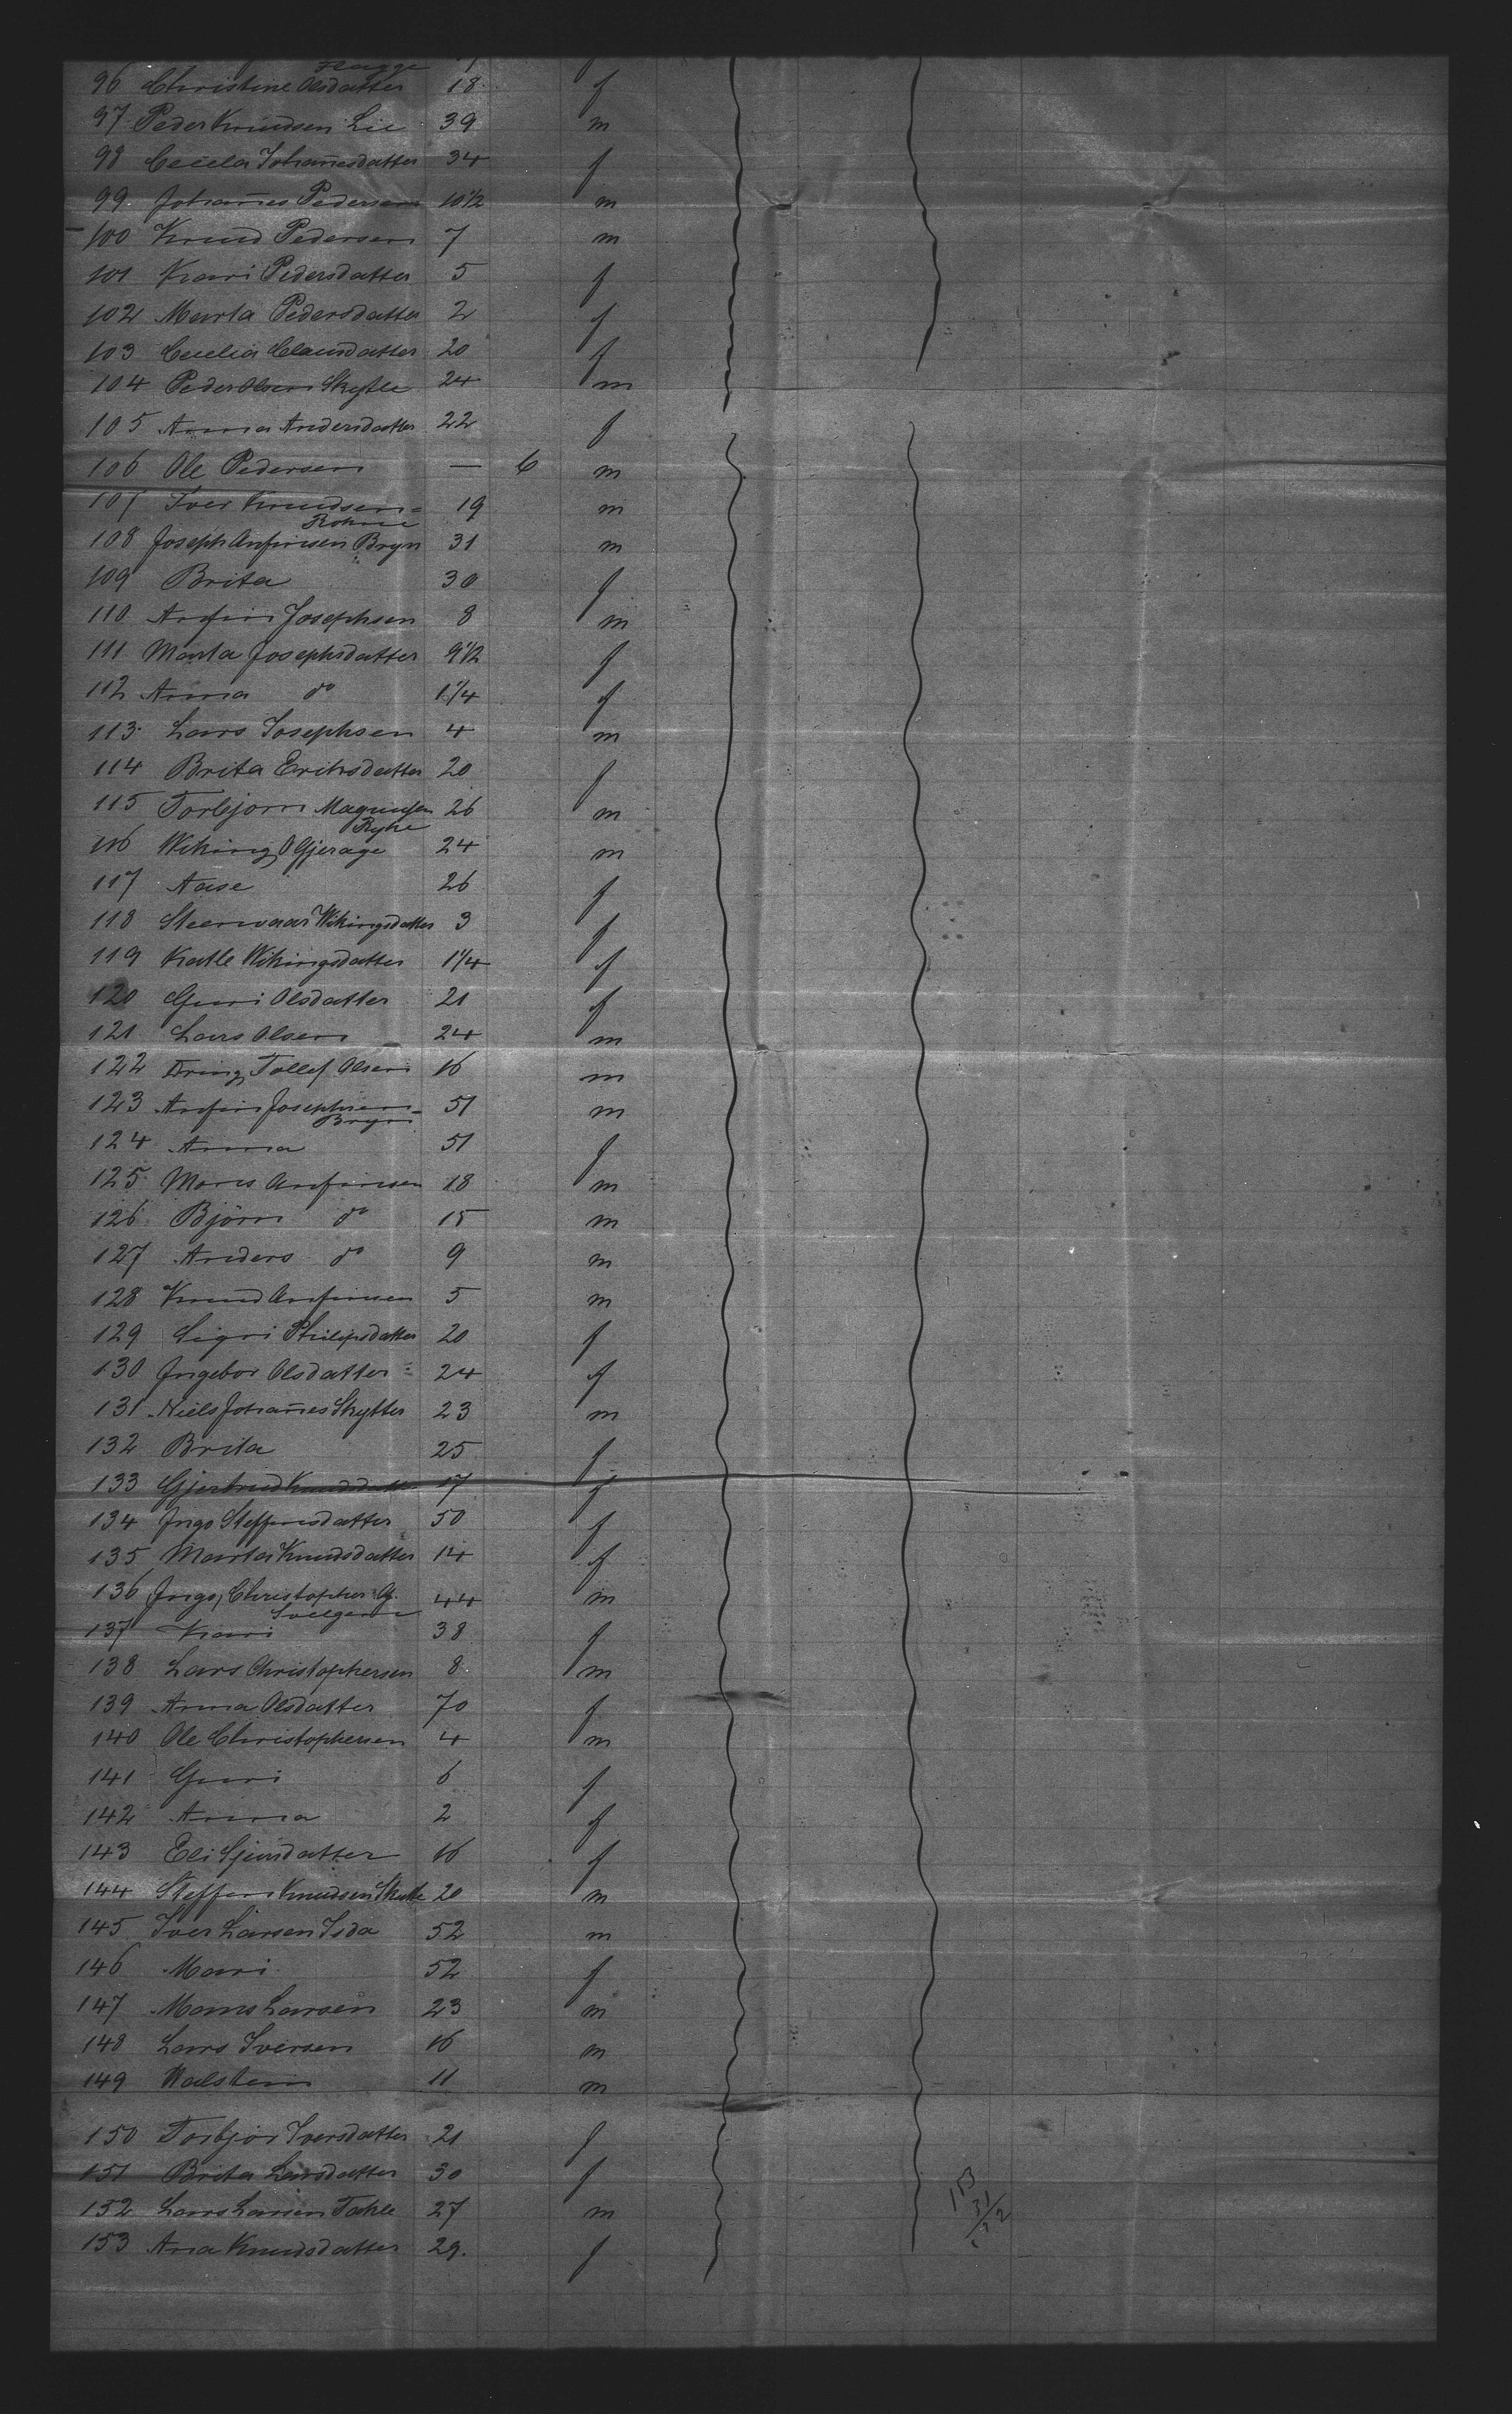 Flagge
96 Christine Olsdatter 18 f
97 Peder Knudsen Lie 39 m
98 Cecela Johan̄esdatter 34 f
99 Johan̄es Pedersen 10 1/2 m
100 Knud Pedersen 7 m
101 Kari Pedersdatter 5 f
102 Marta Pedersdatter 2 f
103 Cecelia Clausdatter 20 f
104 Peder Olsen Skytle 24 m
105 Anna Andersdatter 22 f
106 Ole Pedersen — 6 m
107 Iver Knudsen= 19 m
Rohne
108 Joseph Anfinsen Bryn 31 m
109 Brita 30 f
110 Anfin Josephsen 8 m
111 Marta Josephsdatter 9 1/2 f
112 Anna do 1 1/4 f
113 Lars Josephsen 4 m
114 Brita Eriksdatter 20 f
115 Torbjorn Magnusen 26 m
Ryke
116 Wiking O Gjerage 24 m
117 Aase 26 f
118 Steenvaar Wikingsdatter 3 f
119 Katle Wikingsdatter 1 1/4 f
120 Guri Olsdatter 21 f
121 Lars Olsen 24 m
122 Tollef Olsen 16 m
123 Anfin Josephsen= 51 m
Bryn
124 Anna 51 f
125 Mons Anfinsen 18 m
126 Björn do 15 m
127 Anders do 9 m
128 Knud Anfinsen 5 m
129 Sigri Philipsdatter 20 f
130 Ingebor Olsdatter 24 f
131 Niels Johan̄es Skytter 23 m
132 Brita 25 f
133 Gjertrud Knudsdatter 17 f
134 Inga Steffensdatter 50 f
135 Marta Knudsdatter 14 f
136 Christopher 44 m
137 Kari 38 f
138 Lars Christophersen 8 m
139 Anna Olsdatter 70 f
140 Ole Christophersen 4 m
141 Guri 6 f
142 Anna 2 f
143 Eli Sjursdatter 16 f
144 Steffen Knudsen 20 m
145 Iver Larsen Isda 52 m
146 Mari 52 f
147 Mons Larsen 23 m
148 Lars Iversen 16 m
149 Halstein 11 m
150 Torbjor Iversdatter 21 f
151 Brita Larsdatter 30 f
152 Lars Larsen Takle 27 m
153 Ana Knudsdatter 29. f
153
31